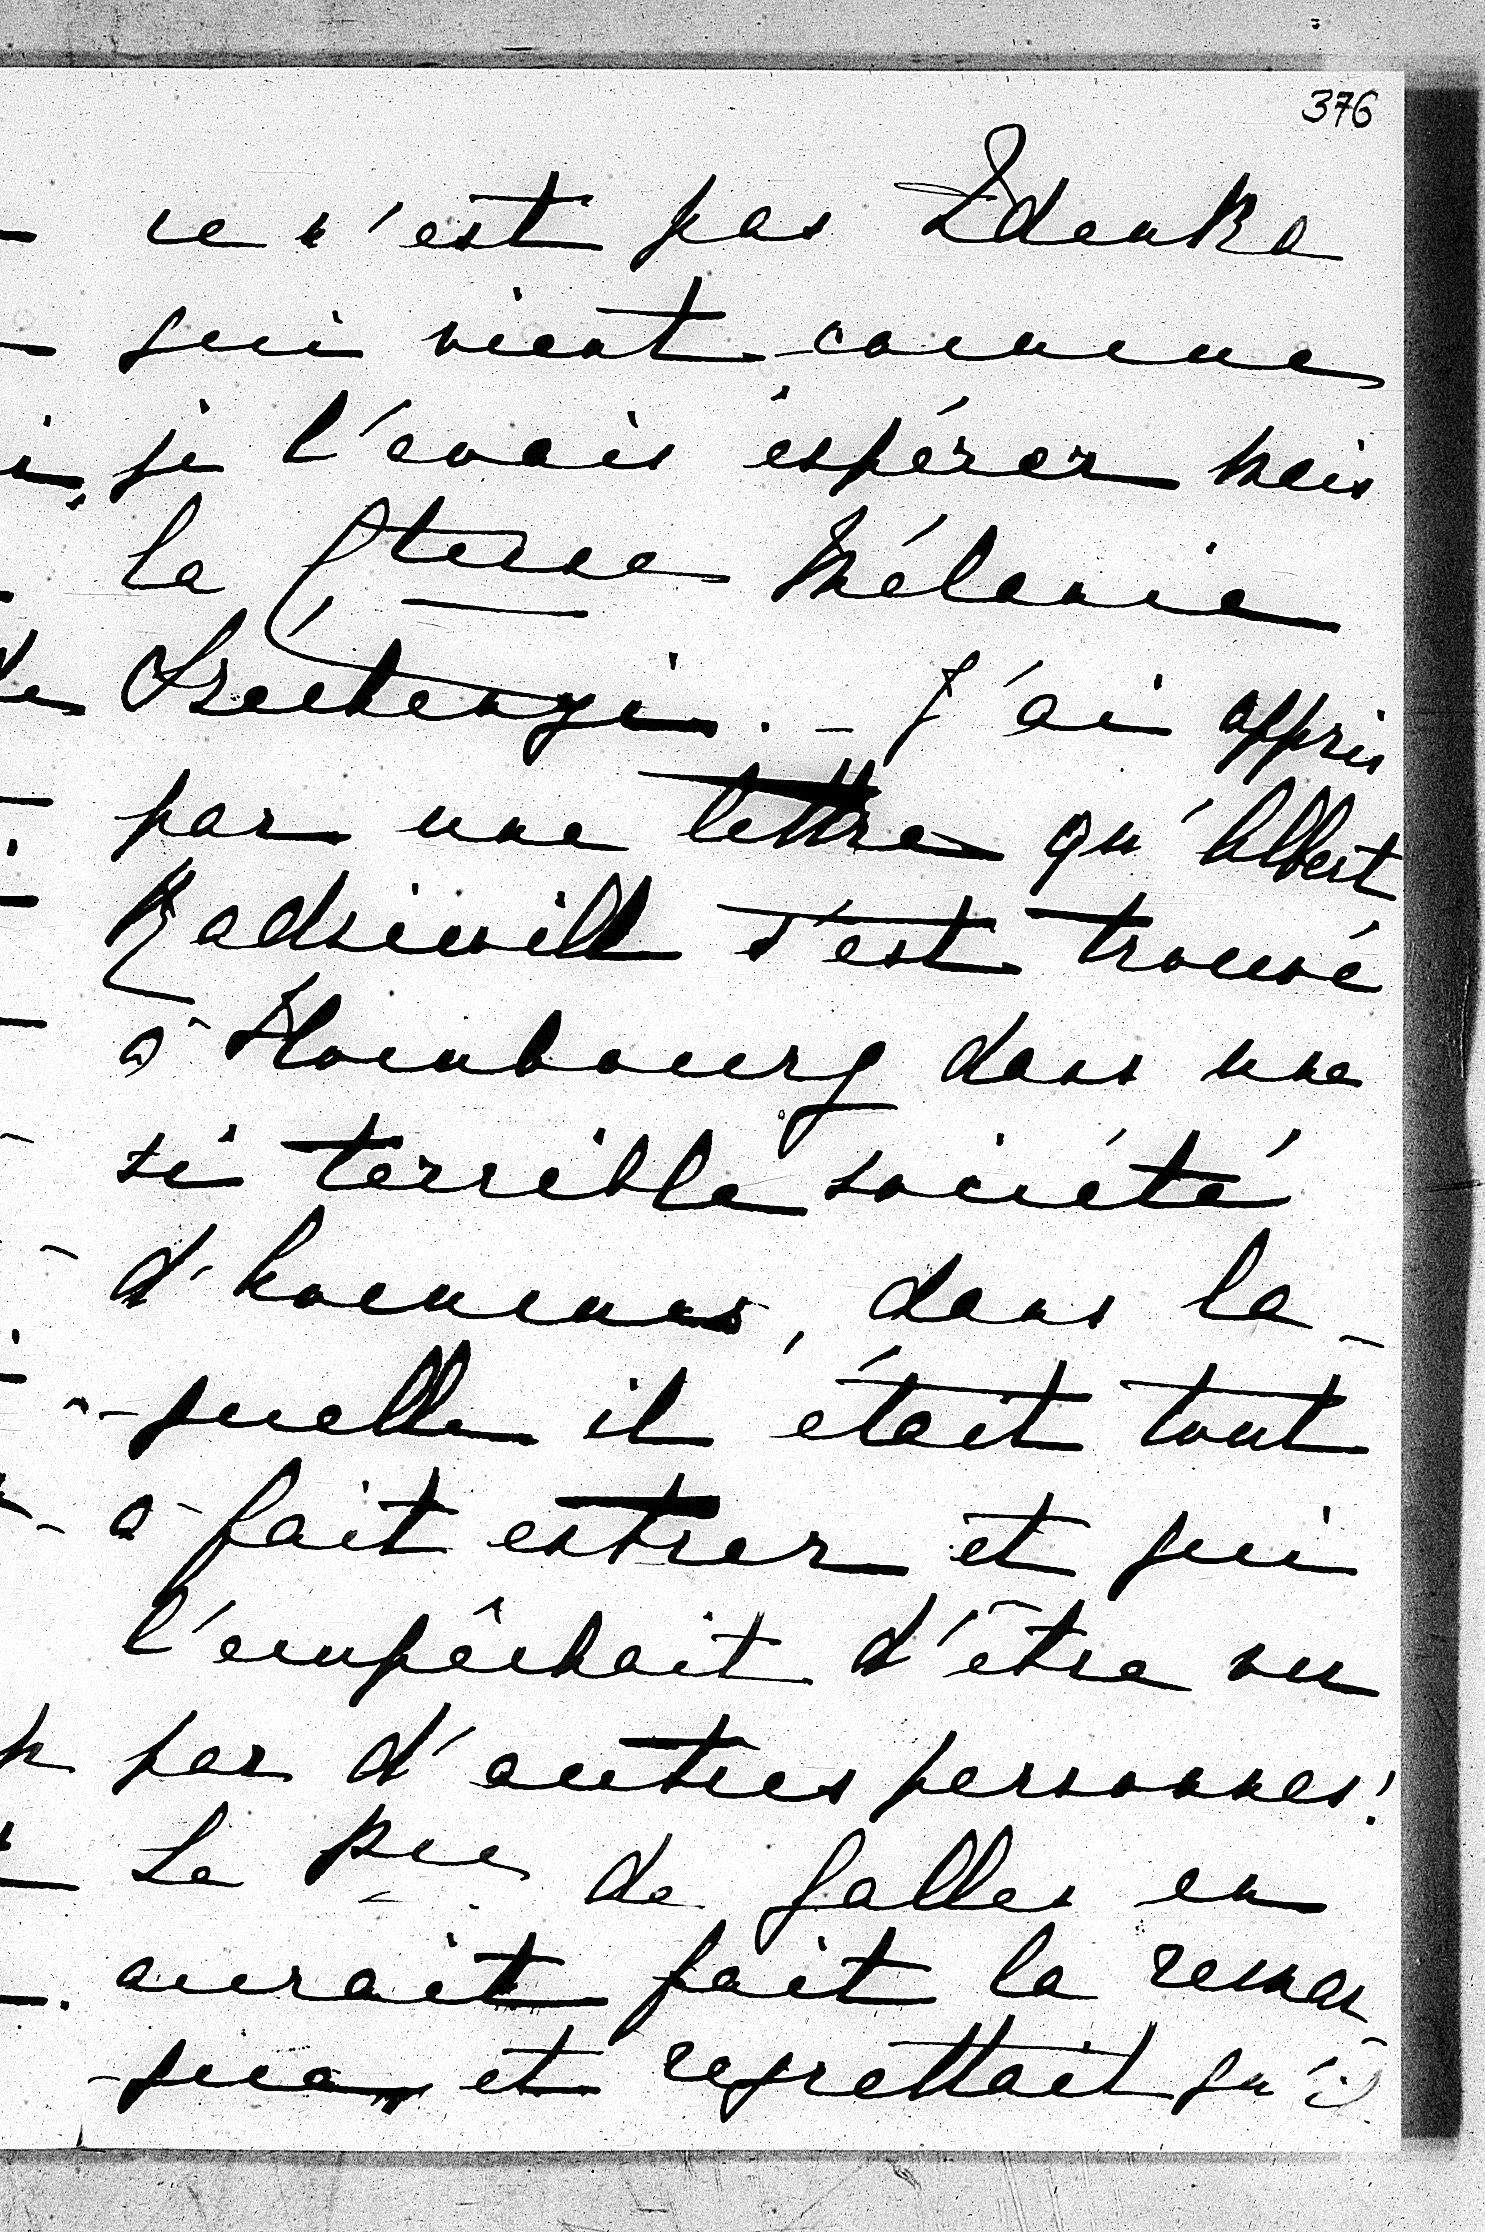 376
ce n'est pas Zdenka
qui vient comme
je l'avais espérer mais
la Ctesse Mélanie
Szechenyi. - J'ai appris
par une lettre qu'Albert
Radziwill s'est trouvé
à Hombourg dans une
si terrible société
d'hommes, dans la-
-quelle il était tout
à fait entrer et qui
l'empêchait d'être vu
par d'autres personnes!
Le Pce de Galles en
aurait fait la remar-
-que, et regrettait qu'il